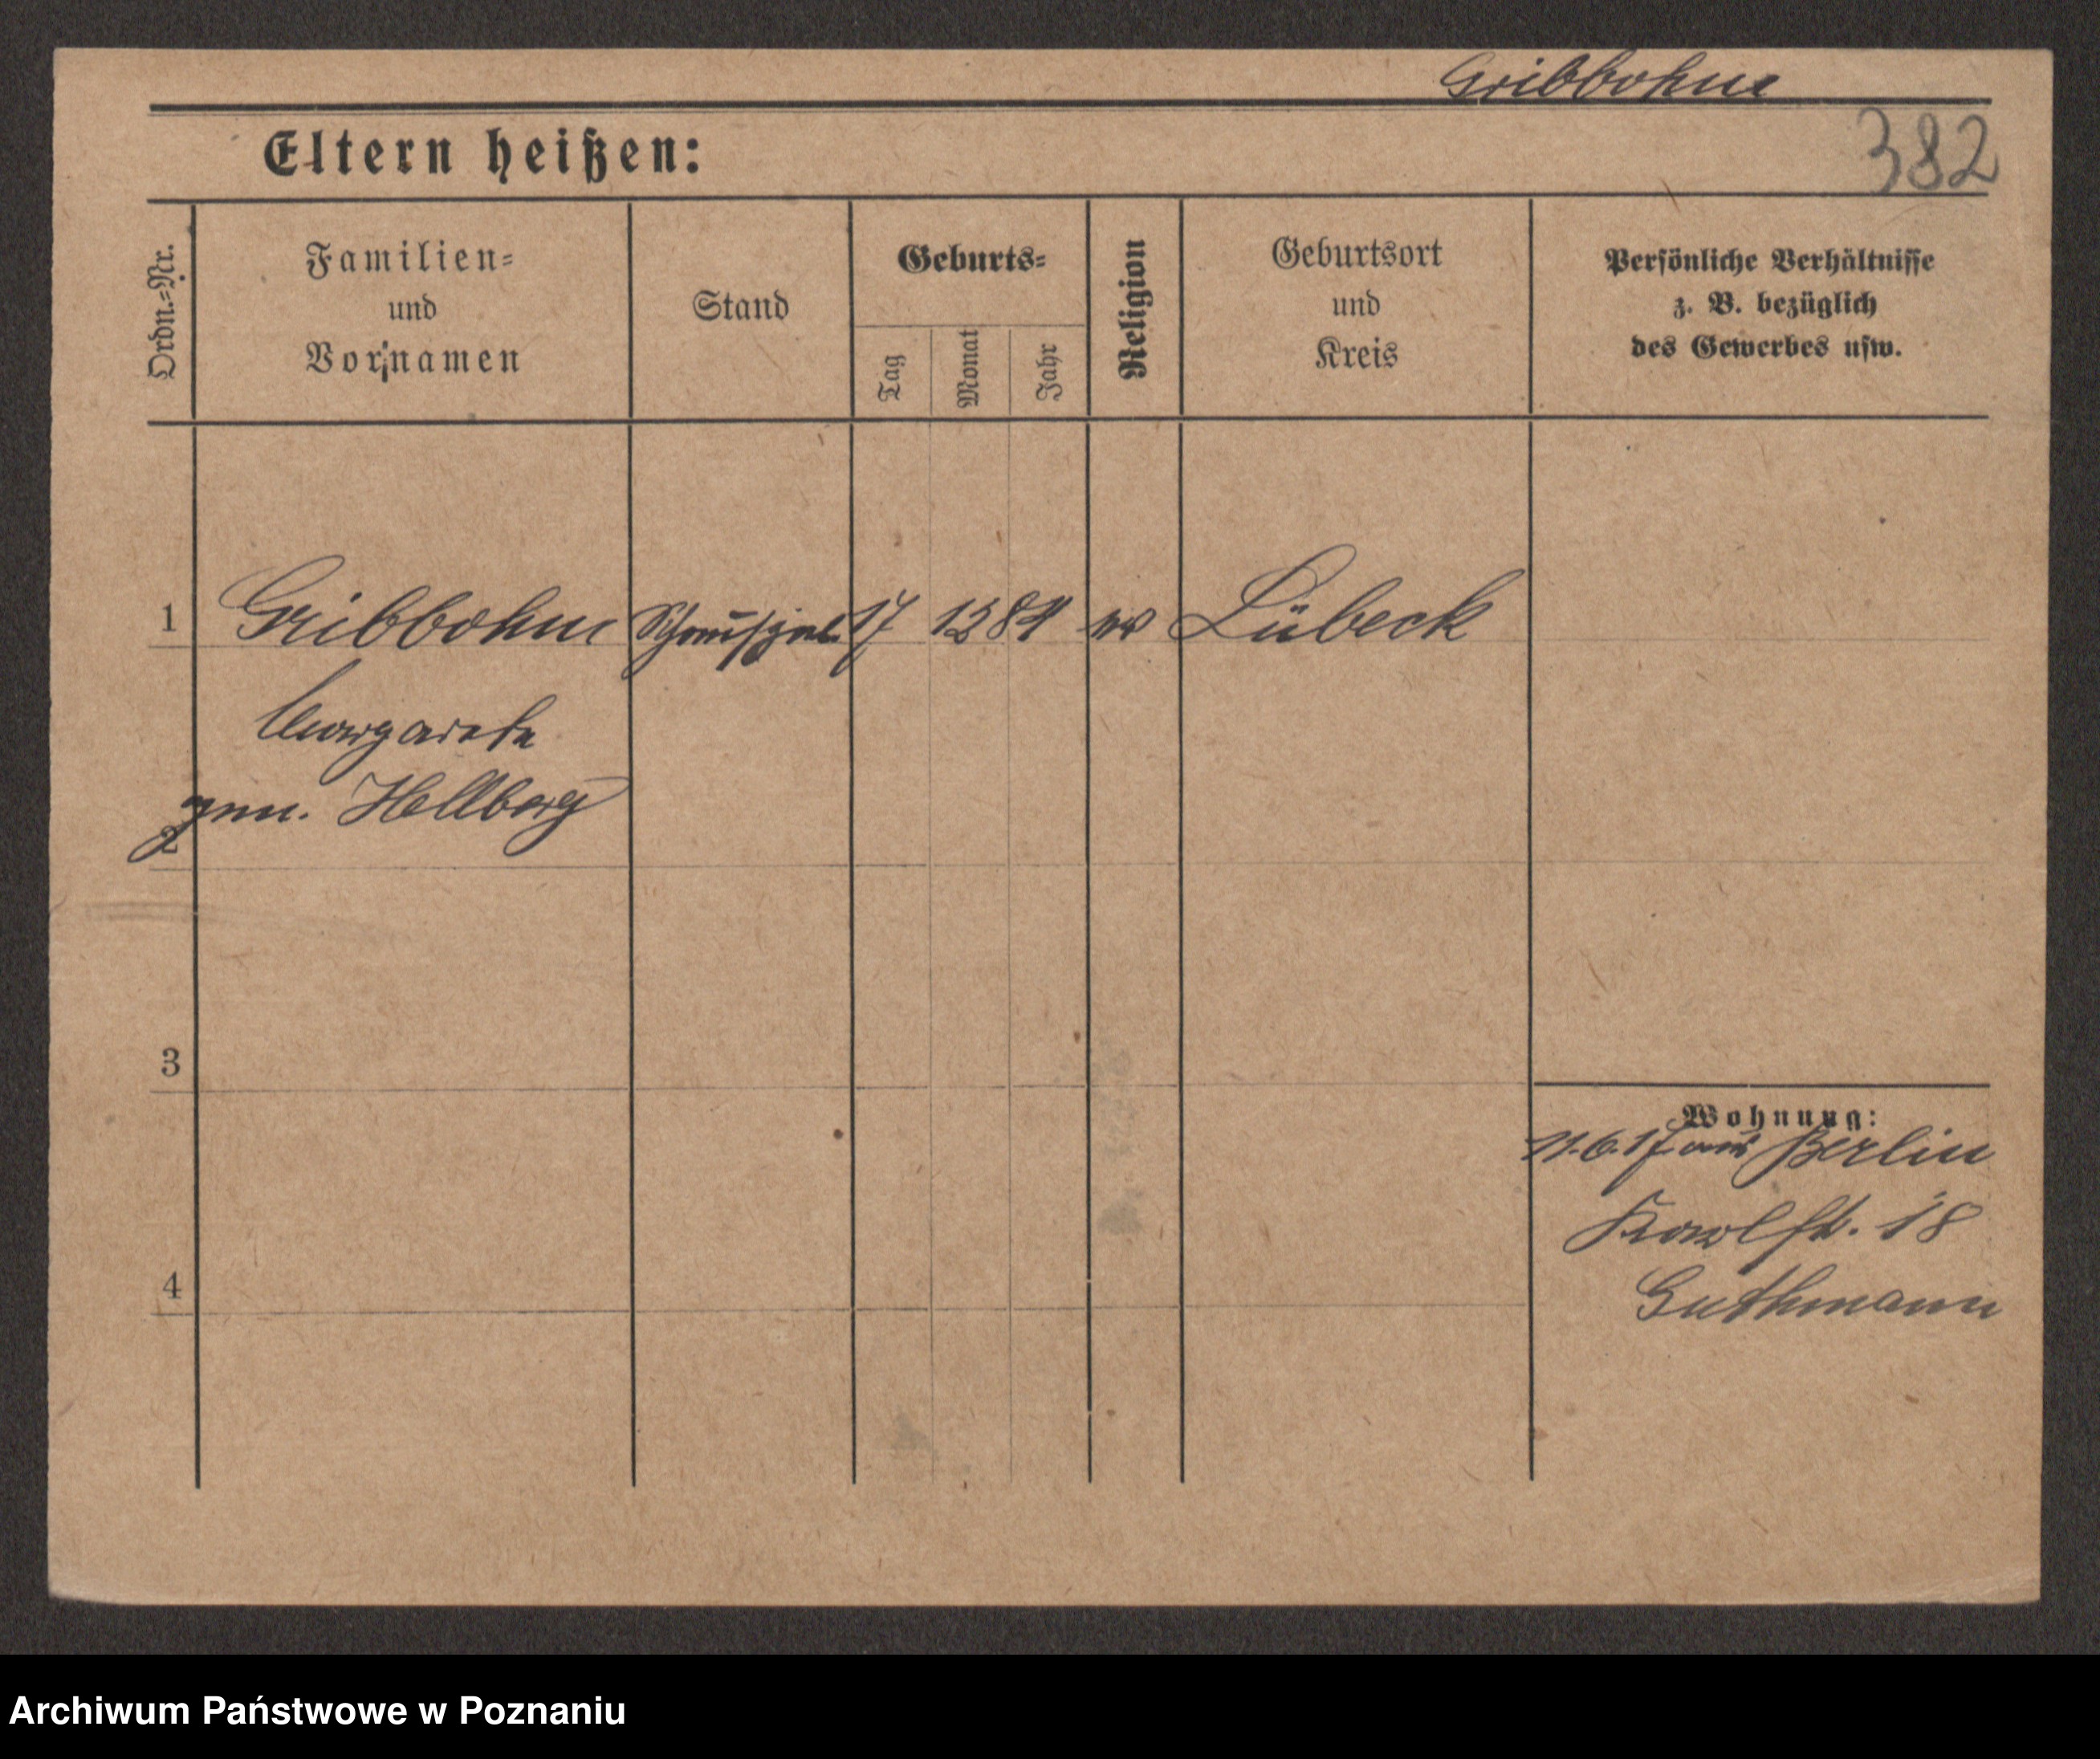 Gribbohm
Eltern heißen:
382
Ordn.-Nr.
Familien-
und
Vornamen
Stand
Geburts-
Tag
Monat
Jahr
Religion
Geburtsort
und
Kreis
Persönliche Verhältnisse
z. B. bezüglich
des Gewerbes usw.
1 Gribbohm Schauspiel. 17 12 84 ev Lübeck
Margarete
gnn. Hellberg
2
3
Wohnung:
11.6.17 aus Berlin
Karlstr. 18
4
Guthmann
Archiwum Państwowe w Poznaniu